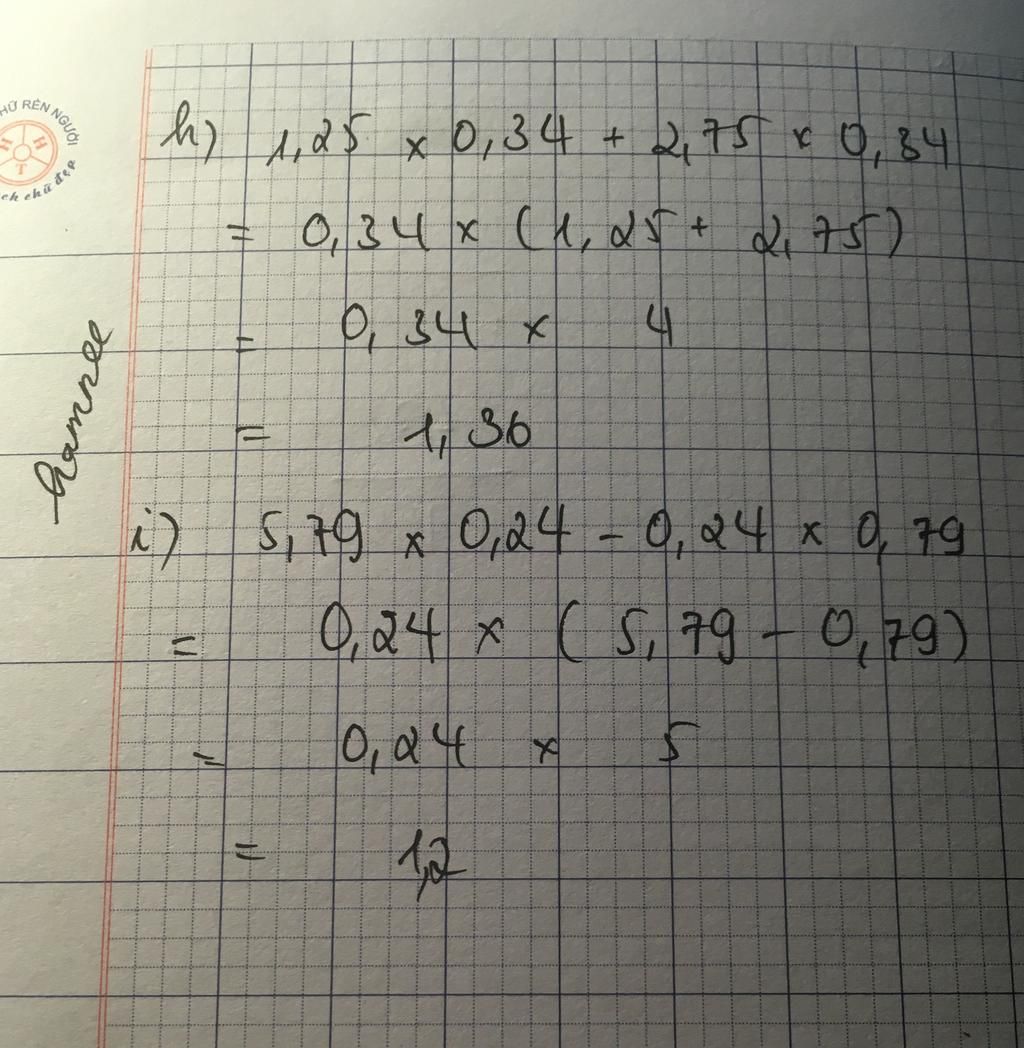 HỮ RÈN NGƯỜI
H H
T
ch chữ đẹp
h) 1,25 x 0,34 + 2,75 x 0,34
= 0,34 x (1,25 + 2,75)
= 0,34 x 4
= 1,36
i) 5,79 x 0,24 - 0,24 x 0,79
= 0,24 x (5,79 - 0,79)
= 0,24 x 5
= 1,2